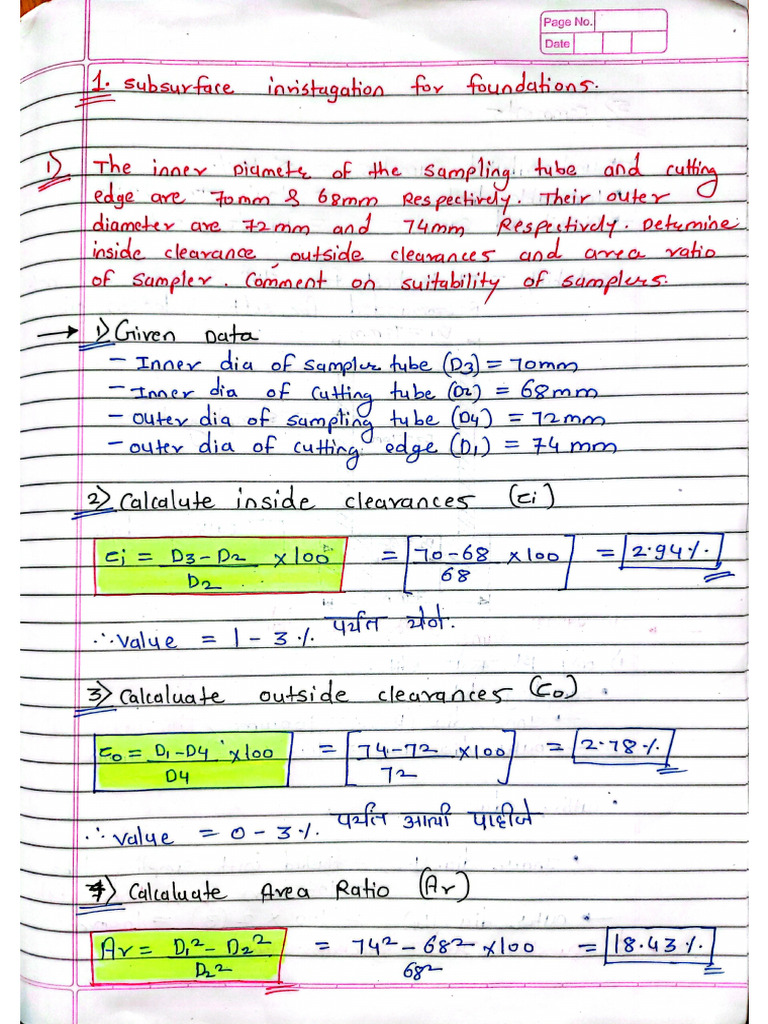 Page No.
Date
1. subsurface invistagation for foundations.
1) The inner Diamete of the sampling tube and cutting
edge are 70mm & 68mm Respectively. Their outer
diameter are 72mm and 74mm Respectively. Detumine
inside clearance, outside clearances and area ratio
of sampler. Comment on suitability of samplers.
→ 1) Given Data
- Inner dia of sampler tube (D3) = 70mm
- Inner dia of cutting tube (D2) = 68mm
- outer dia of sampling tube (D4) = 72mm
- outer dia of cutting edge (D1) = 74 mm
2) Calcalute inside clearances (ci)
ci = D3-D2/D2 x100 = [70-68/68 x100] = 2.94%.
∴ value = 1 - 3% पर्यंत येणे.
3) Calcaluate outside clearances (Co)
co = D1-D4/D4 x100 = [74-72/72 x100] = 2.78%
∴ value = 0-3% पर्यंत आली पाहीजे
4) Calcaluate Area Ratio (Ar)
Ar = D1²-D2²/D2² = 74²-68²/68² x100 = 18.43%